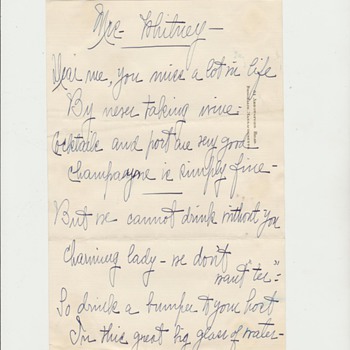 Mrs. Whitney –
Dear me, you miss a lot in life
By never taking wine –
Cocktails and port are very good
Champagne is simply fine –
But we cannot drink without you
Charming lady – we don't
want ter" –
So drink a bumper to your host
In this great big glass of water –